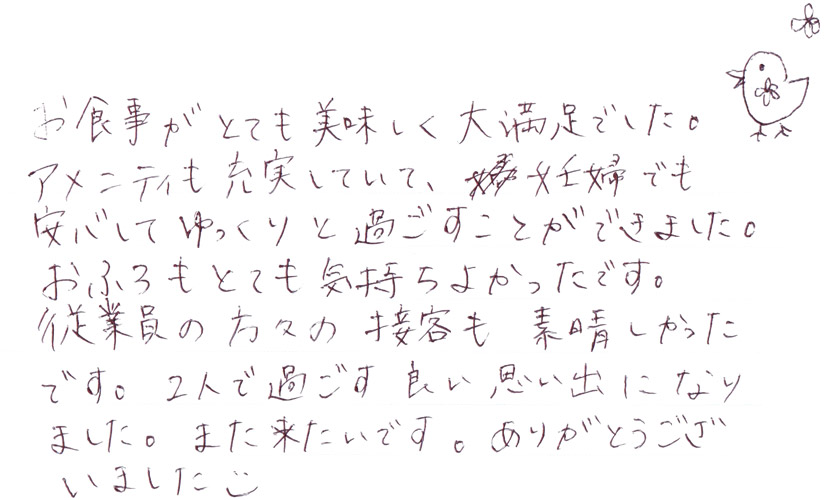 お食事がとても美味しく大満足でした。
アメニティも充実していて、妊婦でも
安心してゆっくりと過ごすことができました。
おふろもとても気持ちよかったです。
従業員の方々の接客も素晴しかった
です。2人で過ごす良い思い出になり
ました。また来たいです。ありがとうござ
いました